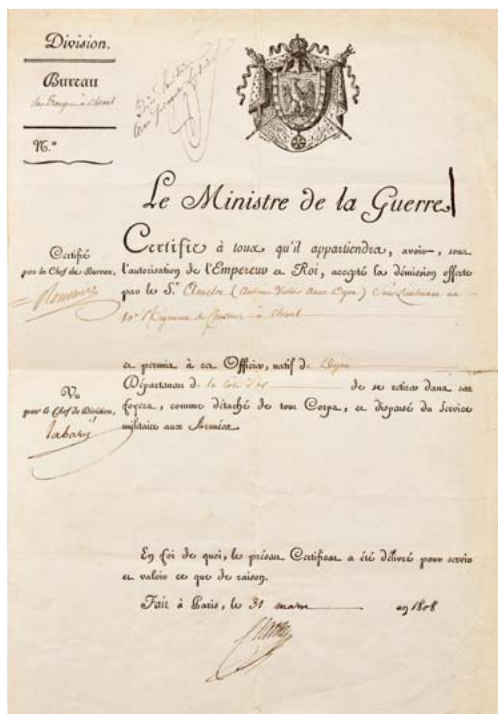 Division.
Bureau
des Troupes à Cheval
N.°
Le Ministre de la Guerre
Certifié
par le Chef du Bureau,
Certifie à tous qu'il appartiendra, avoir, sous
l'autorisation de l'Empereur et Roi, accepté la démission offerte
par le S.r (Antoine Victor Anne) Sous Lieutenant au
10.e Régiment de Chasseurs à Cheval
et permis à cet Officier, natif de Dijon
Département de la Côte d'or de se retirer dans ses
foyers, comme détaché de tout Corps, et dispensé du service
militaire aux Armées.
Vu
par le Chef de Division,
Tabary
En foi de quoi, le présent Certificat a été délivré pour servir
et valoir ce que de raison.
Fait à Paris, le 31 mars an 1808